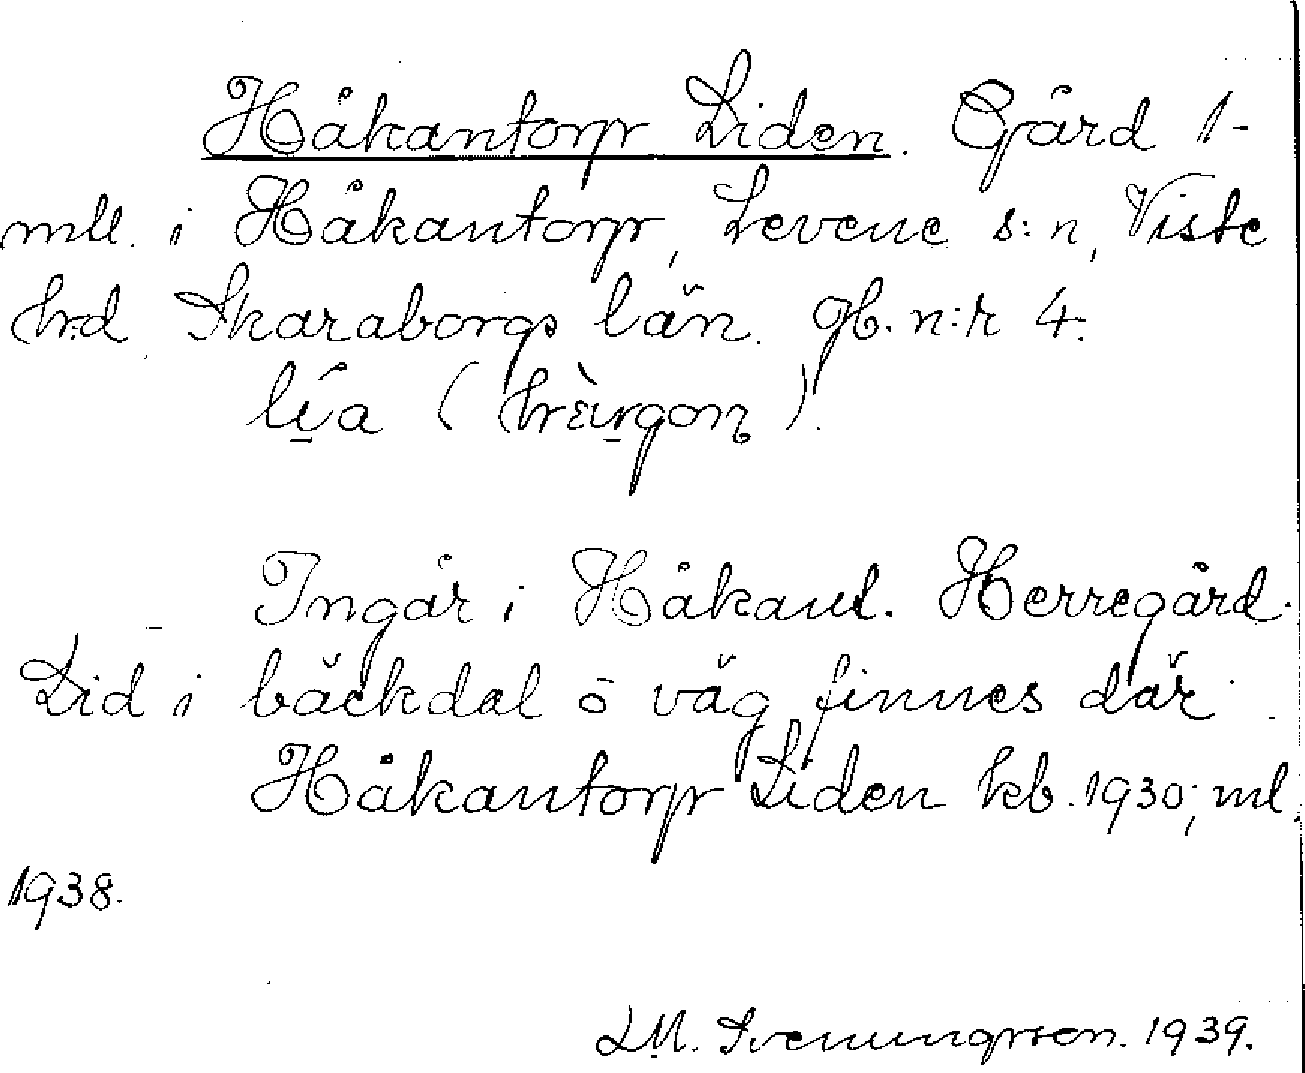 Håkantorp Liden. Gård 1-
mtl. i Håkantorp, Levene s:n, Viste
hrd, Skaraborgs län. Jb. n:r 4.
lí̱a
Ingår i Håkant. Herregård.
Lid i bäckdal o väg finnes där.
Håkantorp Liden kb. 1930; ml.
1938.
L.M. Svenungsson. 1939.